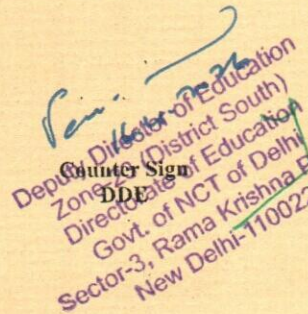 Counter Sign
DDE
Deputy Director of Education
Zone (District South)
Directorate of Education
Govt. of NCT of Delhi
Sector-3, Rama Krishna
New Delhi-110022